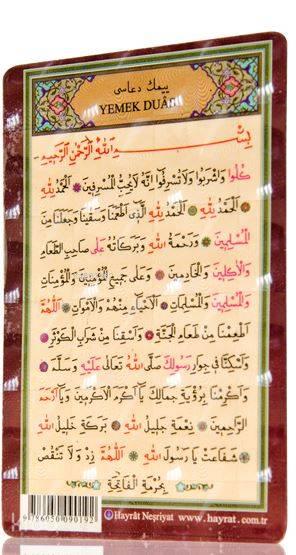 ييمك دعاسى
YEMEK DUÂSI
بِسْمِ اللهِ الرَّحْمٰنِ الرَّحِيمِ
كُلُوا وَاشْرَبُوا وَلَا تُسْرِفُوا اِنَّهُ لَا يُحِبُّ الْمُسْرِفِينَ ❋ اَلْحَمْدُ لِلّٰهِ
اَلْحَمْدُ لِلّٰهِ ❋ اَلْحَمْدُ لِلّٰهِ الَّذِى اَطْعَمَنَا وَسَقَينَا وَجَعَلَنَا مِنَ
الْمُسْلِمِينَ ❋ وَرَحْمَةُ اللهِ وَبَرَكَاتُهُ عَلَى صَاحِبِ الطَّعَامِ
وَالْاٰكِلِينَ وَالْخَادِمِينَ ❋ وَعَلَى جَمِيعِ الْمُؤْمِنِينَ وَالْمُؤْمِنَاتِ
وَالْمُسْلِمِينَ وَالْمُسْلِمَاتِ ❋ اَلْاَحْيَاءِ مِنْهُمْ وَالْاَمْوَاتِ ❋ اَللّٰهُمَّ
اَطْعِمْنَا مِنْ طَعَامِ الْجَنَّةِ ❋ وَاسْقِنَا مِنْ شَرَابِ الْكَوْثَرِ ❋
وَاَسْكِنَّا فِى جِوَارِ رَسُولِكَ صَلَّى اللهُ تَعَالٰى عَلَيْهِ وَسَلَّمَ ❋
وَاَكْرِمْنَا بِرُؤْيَةِ جَمَالِكَ يَا اَكْرَمَ الْاَكْرَمِينَ وَيَا اَرْحَمَ
الرَّاحِمِينَ ❋ نِعْمَةِ جَلِيلُ اللهِ ❋ بَرَكَةِ خَلِيلُ اللهِ
شَفَاعَتْ يَا رَسُولَ اللهِ ❋ اَللّٰهُمَّ زِدْ وَلَا تَنْقُصْ
بِحُرْمَةِ الْفَاتِحَةِ
9 786050 090192
Hayrât Neşriyat www.hayrat.com.tr